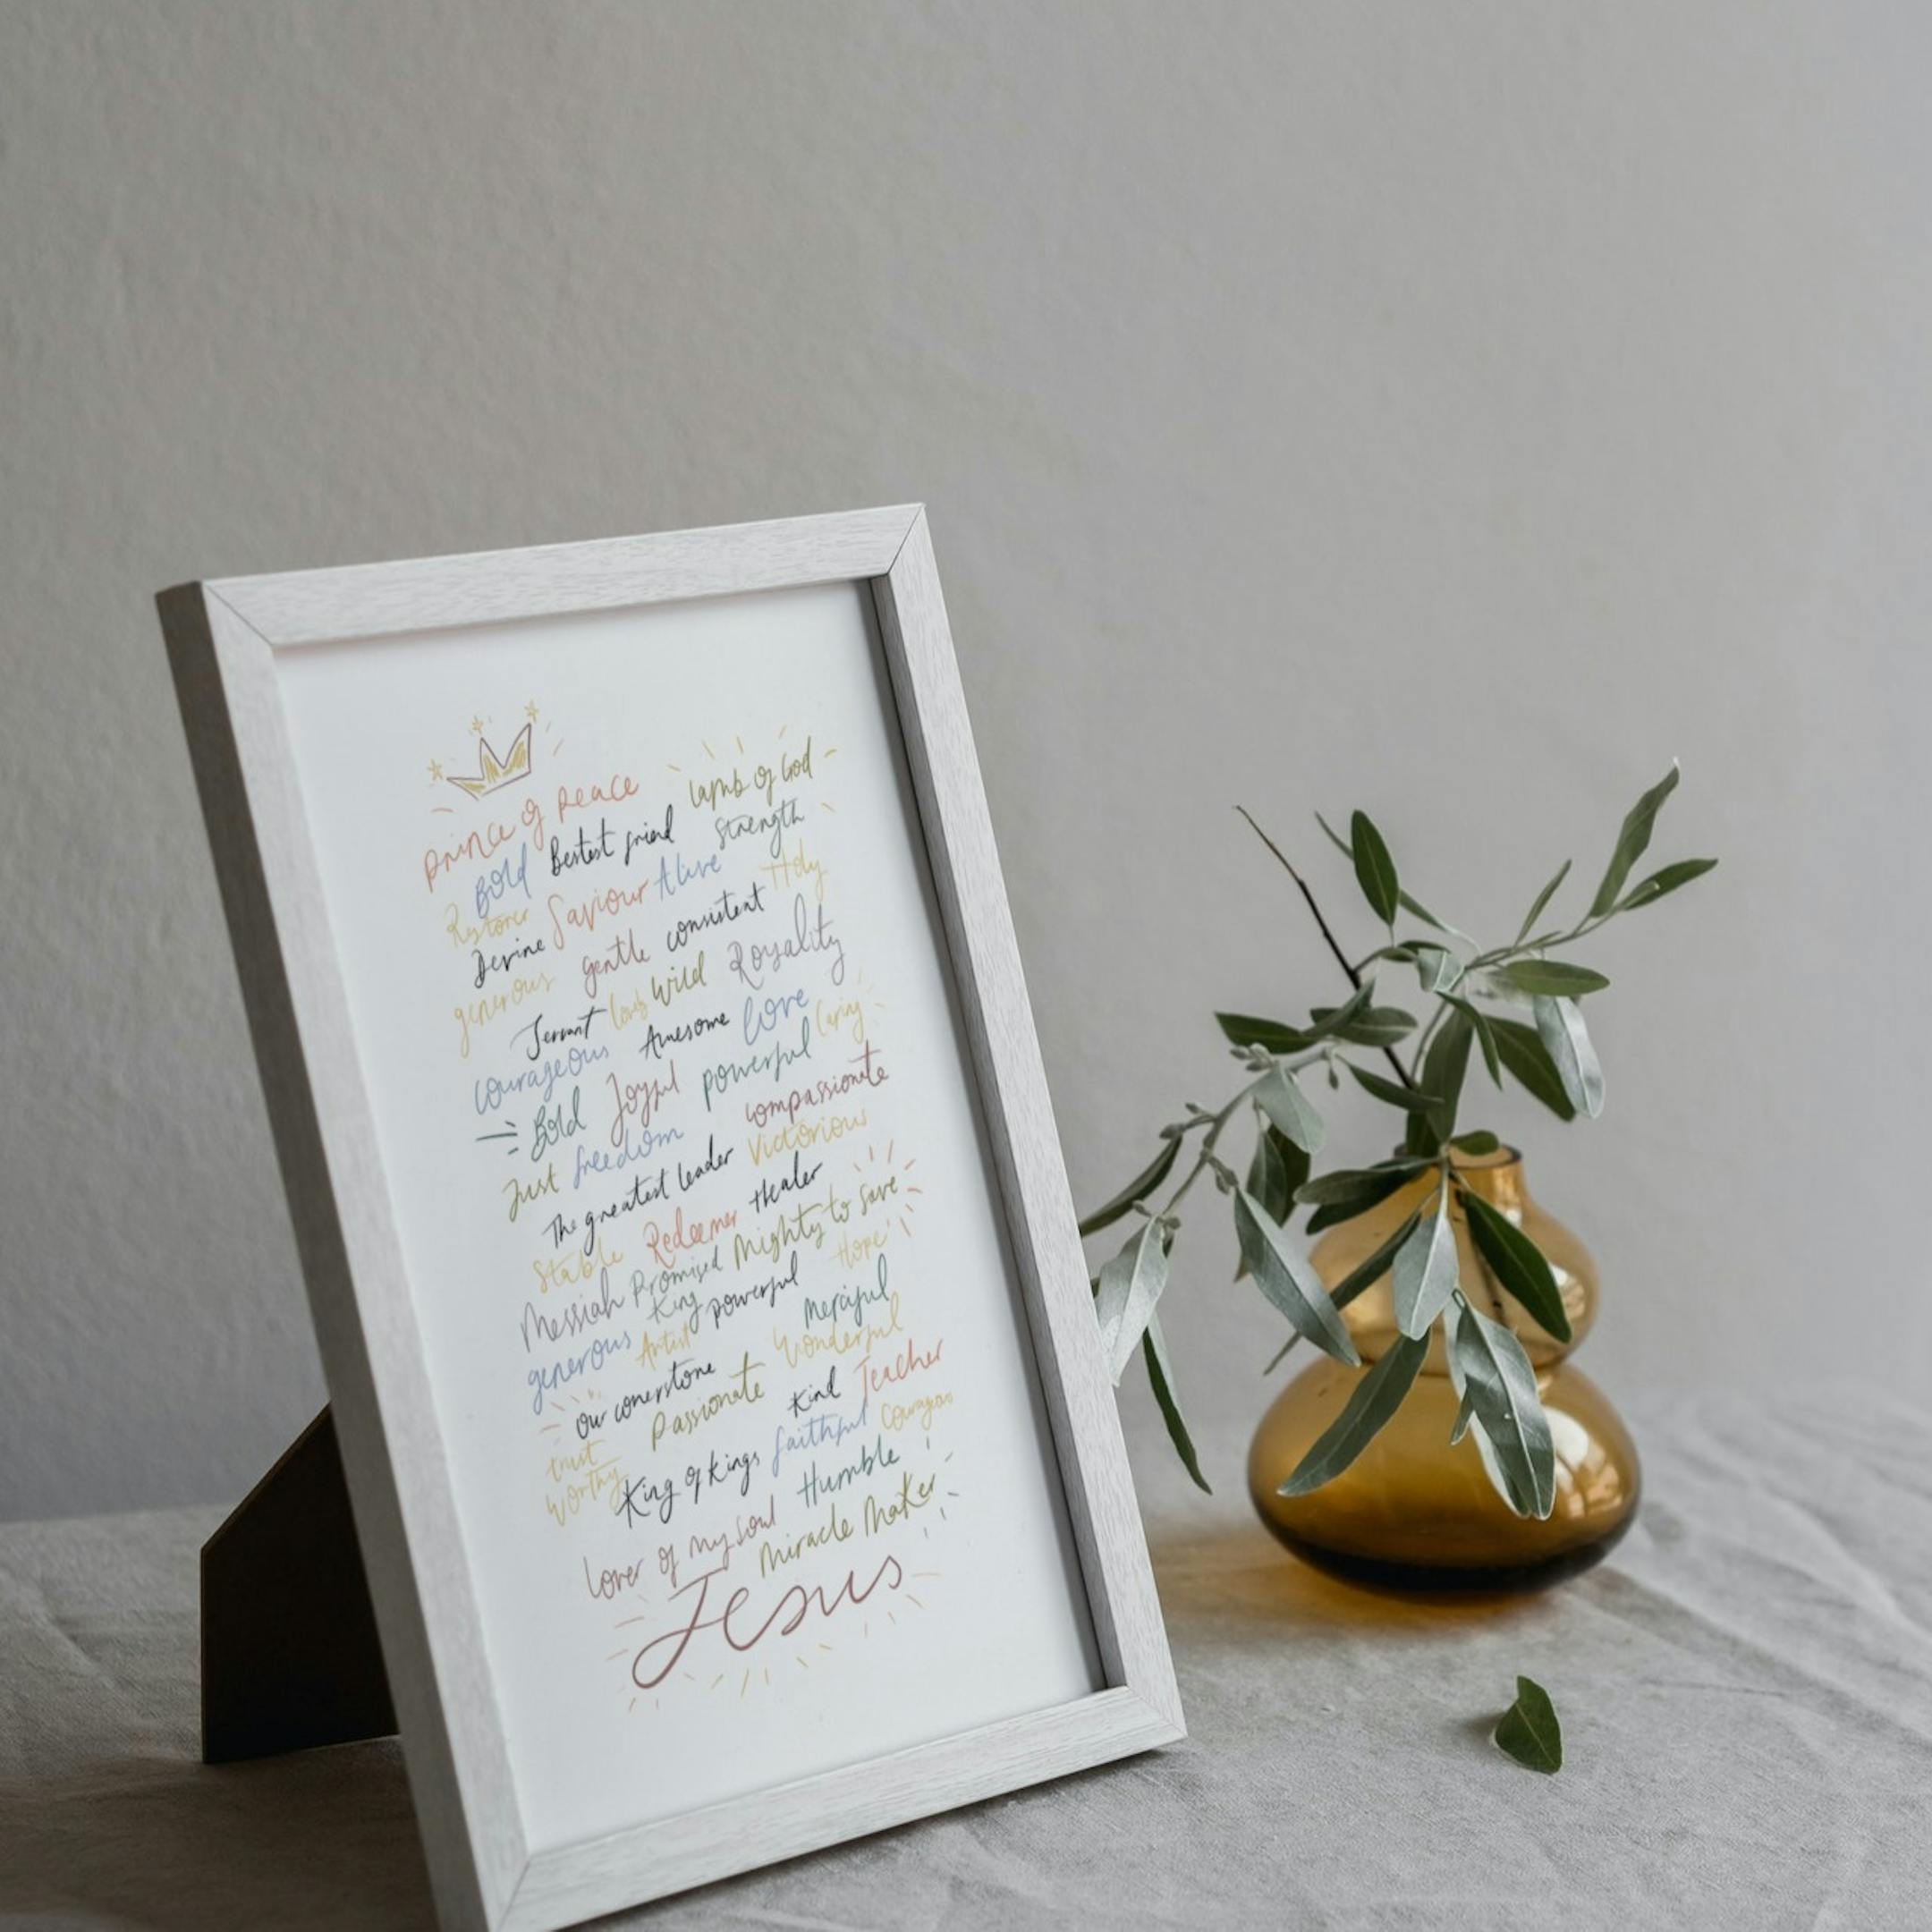 prince of peace Lamb of God
Bold Bestest friend Strength
Restorer Saviour Alive Holy
Devine gentle consistent
generous Lovely Wild Royality
Servant Awesome Love
courageous Joyful powerful Caring
Bold freedom compassionate
Just The greatest leader Victorious
Stable Redeemer Healer
Messiah Promised King Mighty to save
generous Artist powerful Hope
our conerstone Merciful
Passionate Wonderful
trust Kind Teacher
worthy King of Kings faithful Courageous
Lover of my soul Humble
Miracle Maker
Jesus